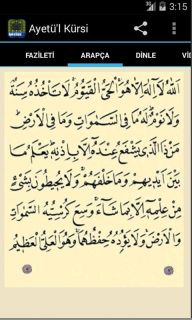 3:15
Ayetü'l Kürsi
FAZİLETİ ARAPÇA DİNLE Vİ
اَللّٰهُ لَٓا اِلٰهَ اِلَّا هُوَۚ اَلْحَيُّ الْقَيُّومُۚ لَا تَأْخُذُهُ سِنَةٌ
وَلَا نَوْمٌۜ لَهُ مَا فِي السَّمٰوَاتِ وَمَا فِي الْاَرْضِۜ
مَنْ ذَا الَّذ۪ي يَشْفَعُ عِنْدَهُٓ اِلَّا بِاِذْنِه۪ۜ يَعْلَمُ مَا
بَيْنَ اَيْد۪يهِمْ وَمَا خَلْفَهُمْۚ وَلَا يُح۪يطُونَ بِشَيْءٍ
مِنْ عِلْمِه۪ٓ اِلَّا بِمَا شَٓاءَۚ وَسِعَ كُرْسِيُّهُ السَّمٰوَاتِ
وَالْاَرْضَۚ وَلَا يَؤُ۫دُهُ حِفْظُهُمَاۚ وَهُوَ الْعَلِيُّ الْعَظ۪يمُ